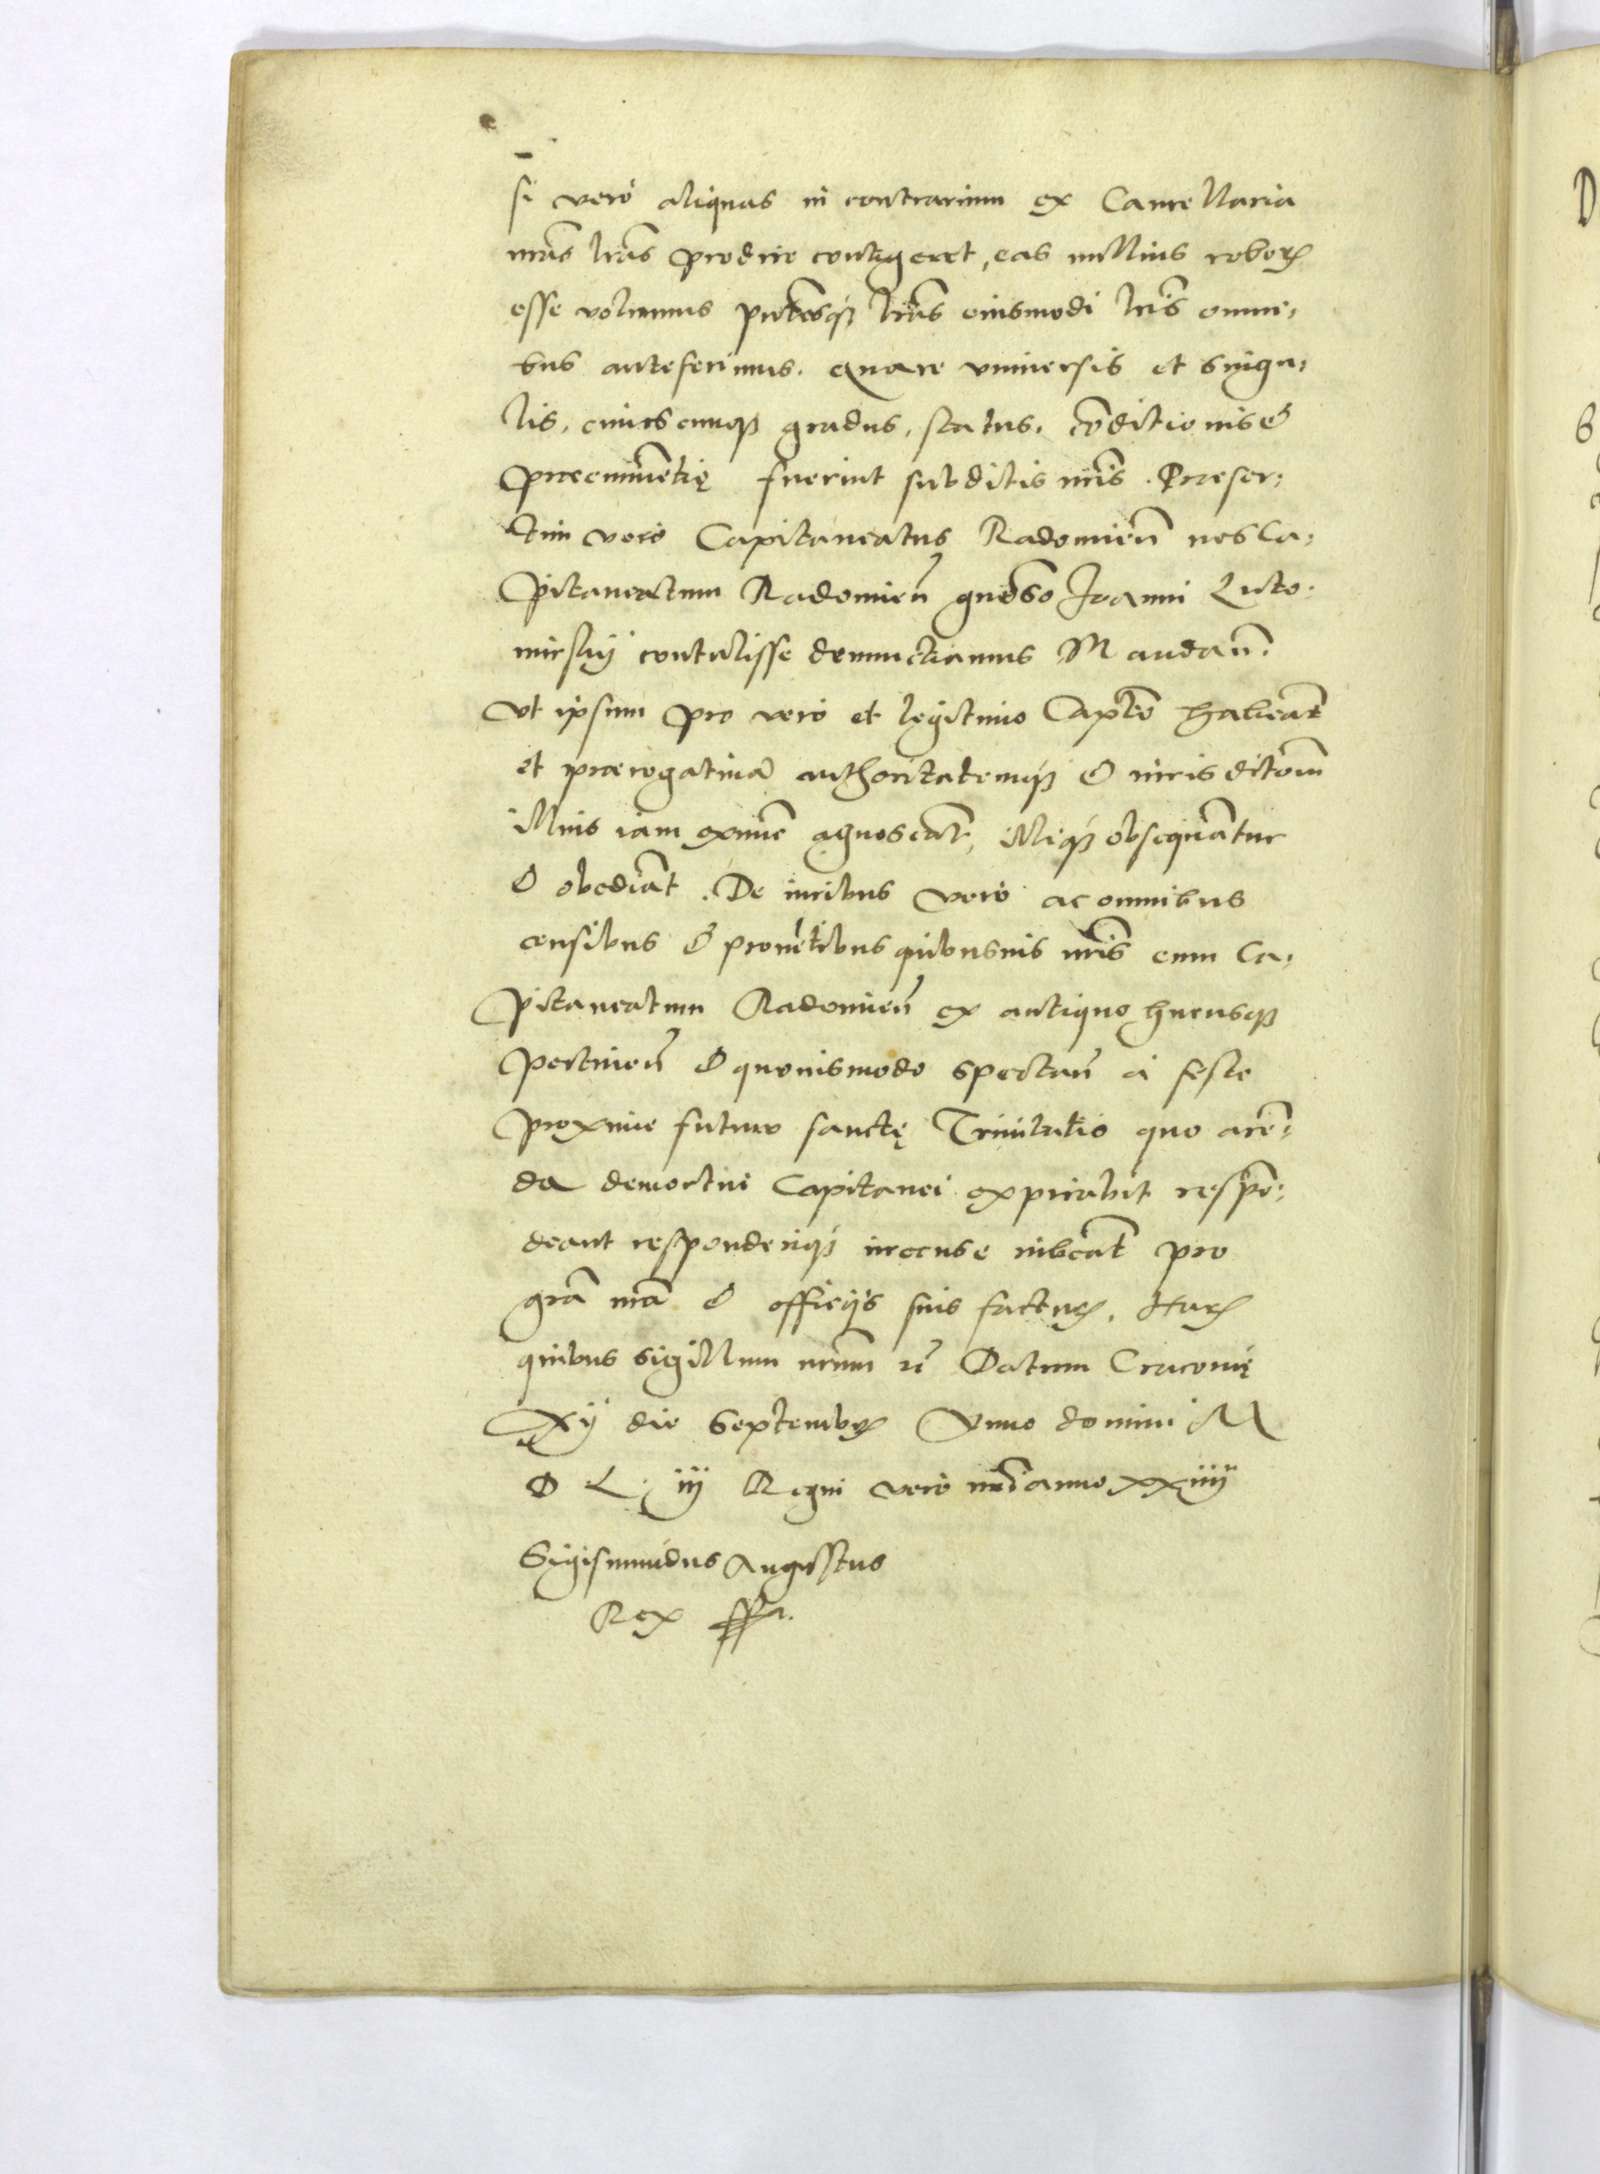 si vero aliquas in contrarium ex Cancellaria
nrãs lrãs prodire contigeret, eas nullius roboris
esse volumus pñtesq; lrãs eiusmodi lris omni,
bus anteferimus. Quare universis et singu,
lis, cuiuscunq; gradus, status, cõditionis &
præeminẽtię fuerint subditis nrĩs. Præser,
tim vero Capitaneatus Radomieñ nos Ca,
pitaneatum Radomieñ gñoso Joanni Luto,
mirskij contulisse denunctiamus Mandañ.
Ut ipsum pro vero et legitimo Captõ habeãt
et prærogativã authoritatemq; & iurisditõem
illius iam exnũc agnoscãt, illiq; obsequãtur
& obediãt. De iuribus vero ac omnibus
censibus & provẽtibus quibusvis nrĩs cum Ca,
pitaneatum Radomieñ ex antiquo hucusq;
pertineñ & quovismodo spectañ à feste
proxime futuro sanctę Trinitatis quo arẽ,
da demortui Capitanei expirabit respõ,
deant responderiq; iubeãt pro
grã nrã & officijs suis facturi. Harũ
quibus sigillum nrũm &c Datum Cracovię
Xij die Septembris Anno domini M
D L iij Regni vero nrĩ anno xxiiij
Sigismundus Augustus
Rex sst.